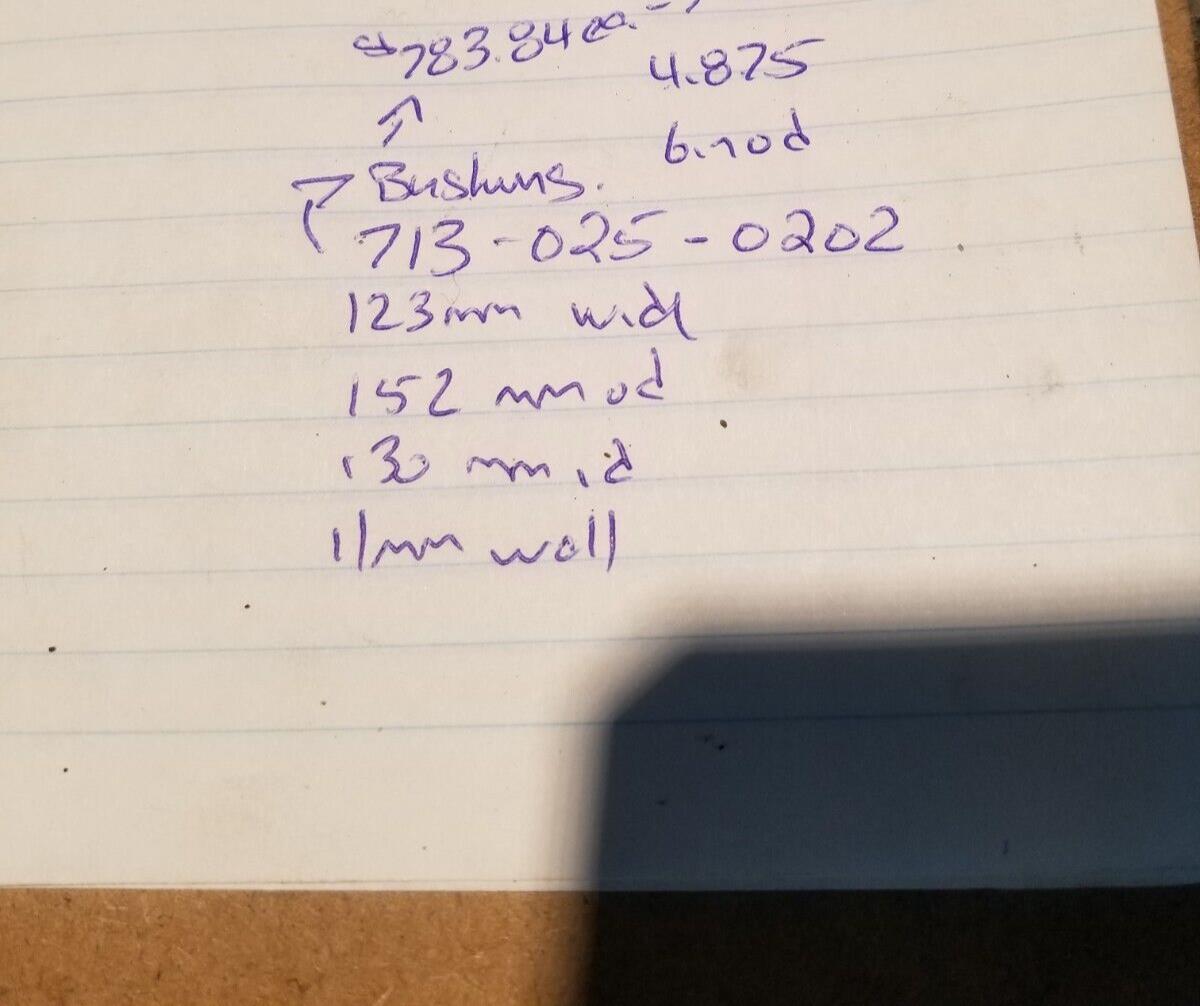 $783.84 ea.
4.875
6.10 od
Bushings.
713-025-0202
123mm wide
152 mm od
130 mm id
11mm wall